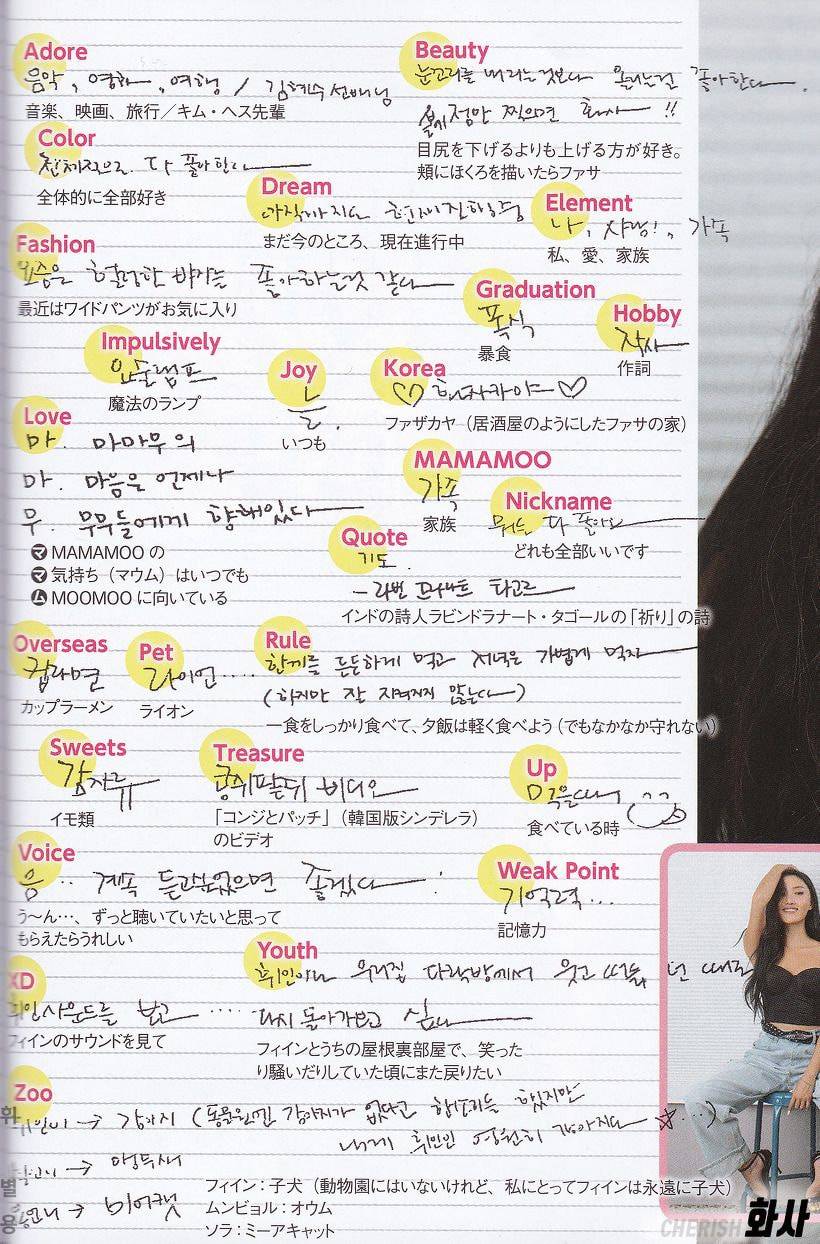 Adore
음악, 영화, 여행 / 김혜수 선배님
音楽、映画、旅行／キム・ヘス先輩
Beauty
눈꼬리를 내리는것보다 올리는걸 좋아한다.
점만 찍으면 화사 !!
目尻を下げるよりも上げる方が好き。
頬にほくろを描いたらファサ
Color
전체적으로 다 좋아한다
全体的に全部好き
Dream
아직까지는 현재진행중
まだ今のところ、現在進行中
Element
나, 사랑!, 가족
私、愛、家族
Fashion
요즘은 헐렁한 바지를 좋아하는것 같다
最近はワイドパンツがお気に入り
Graduation
폭식
暴食
Hobby
작사
作詞
Impulsively
요술램프
魔法のランプ
Joy
늘.
いつも
Korea
♡ 화자카야 ♡
ファザカヤ（居酒屋のようにしたファサの家）
Love
마. 마마무의
마. 마음은 언제나
무. 무무들에게 향해있다
マ MAMAMOO の
マ 気持ち（マウム）はいつでも
ム MOOMOO に向いている
MAMAMOO
가족
家族
Nickname
뭐든 다 좋아요
どれも全部いいです
Quote
기도.
- 라빈드라나트 타고르
インドの詩人ラビンドラナート・タゴールの「祈り」の詩
Overseas
컵라면
カップラーメン
Pet
라이언....
ライオン
Rule
한끼를 든든하게 먹고 저녁은 가볍게 먹자
(하지만 잘 지켜지지 않는다)
一食をしっかり食べて、夕飯は軽く食べよう（でもなかなか守れない）
Sweets
감자류
イモ類
Treasure
콩쥐팥쥐 비디오
「コンジとパッチ」（韓国版シンデレラ）
のビデオ
Up
먹을때
食べている時
Voice
음.. 계속 듣고싶었으면 좋겠다 !
う〜ん…、ずっと聴いていたいと思って
もらえたらうれしい
Weak Point
기억력...
記憶力
XD
휘인사운드를 보고 .....
フィインのサウンドを見て
Youth
휘인이랑 우리집 다락방에서 웃고 떠들던 때로
다시 돌아가보고 싶다
フィインとうちの屋根裏部屋で、笑った
り騒いだりしていた頃にまた戻りたい
Zoo
휘인이 → 강아지 (동물원엔 강아지가 없다고 하지만
내게 휘인인 영원히 강아지다 ☆...)
→ 앵무새
용언니 → 미어캣
フィイン：子犬（動物園にはいないけれど、私にとってフィインは永遠に子犬）
ムンビョル：オウム
ソラ：ミーアキャット
CHERISH 화사